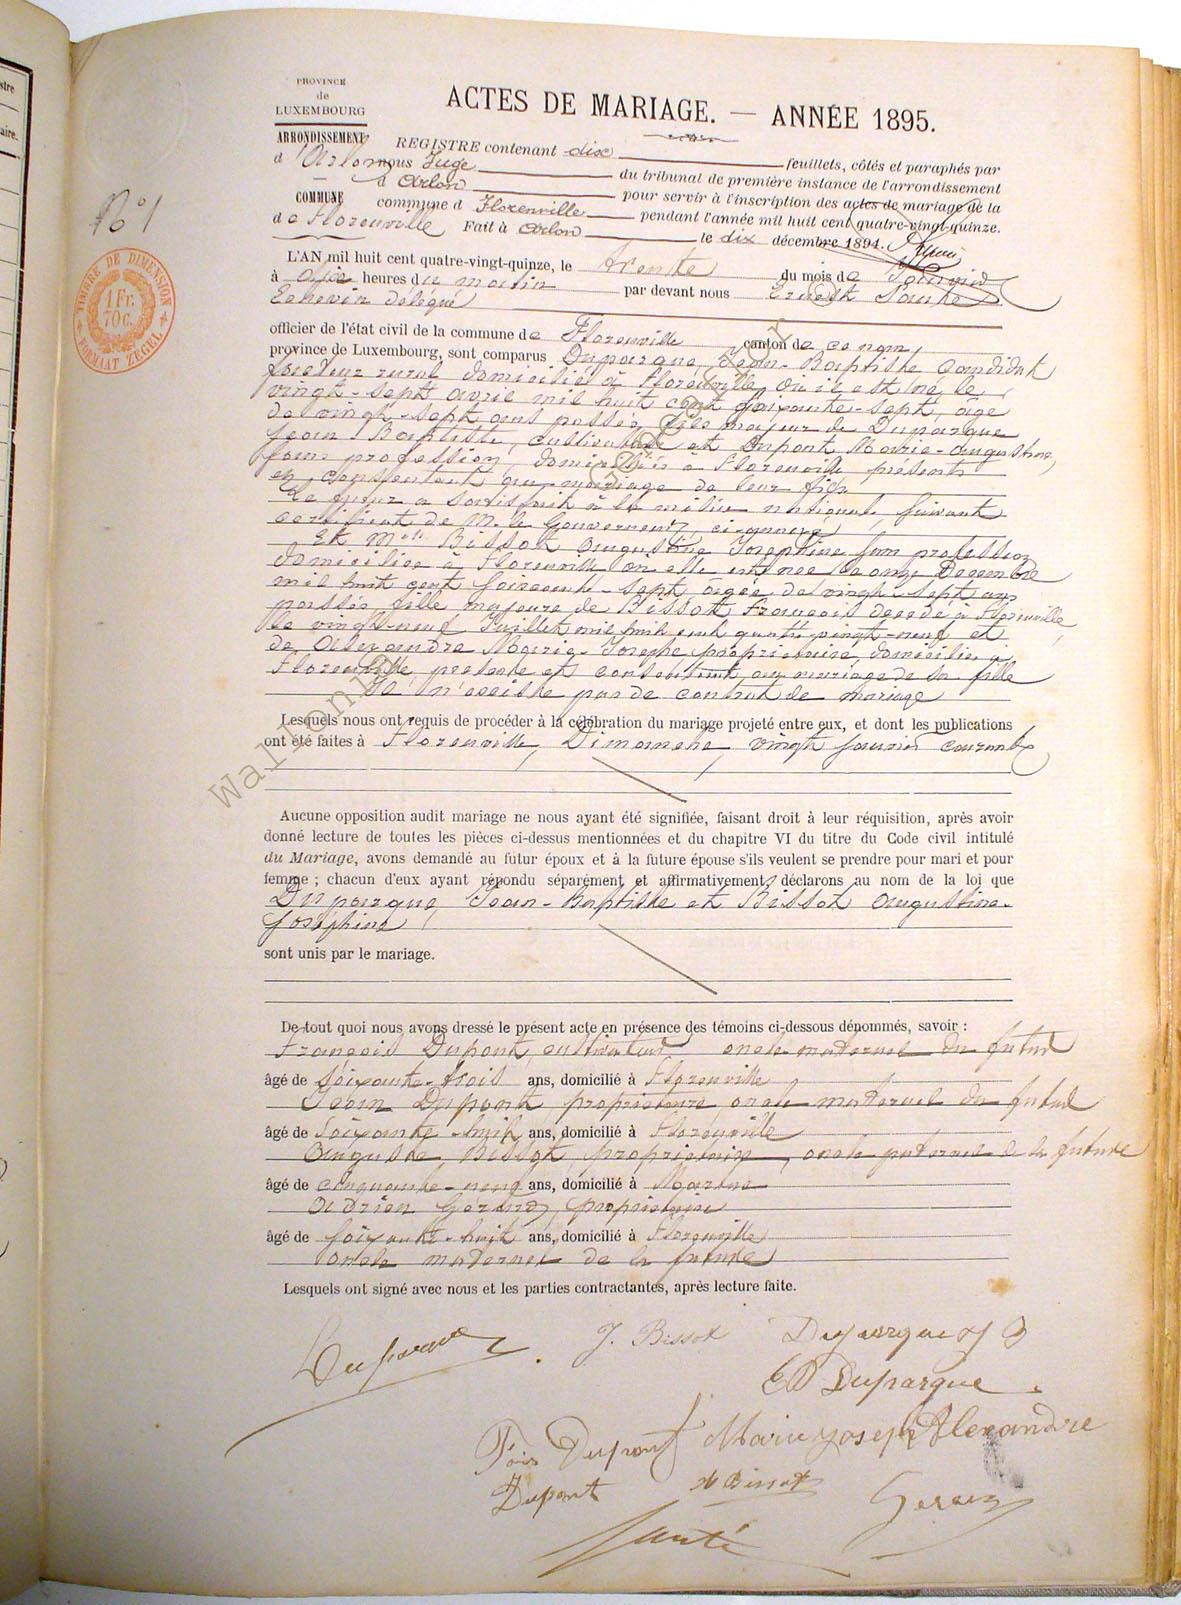 PROVINCE
de
LUXEMBOURG
ACTES DE MARIAGE. — ANNÉE 1895.
ARRONDISSEMENT
d'Arlon
COMMUNE
de Florenville
REGISTRE contenant dix feuillets, côtés et paraphés par
nous Juge du tribunal de première instance de l'arrondissement
d Arlon pour servir à l'inscription des actes de mariage de la
commune d Florenville pendant l'année mil huit cent quatre-vingt-quinze.
Fait à Arlon le dix décembre 1894.
N° 1
TIMBRE DE DIMENSION
1 Fr.
70 c.
FORMAAT ZEGEL
L'AN mil huit cent quatre-vingt-quinze, le trente du mois de Janvier
à heures du matin par devant nous Ernest
Echevin délégué
officier de l'état civil de la commune de Florenville canton de ce nom,
province de Luxembourg, sont comparus Duparque, Jean-Baptiste Candidat
facteur rural domicilié à Florenville où il est né le
vingt-sept avril mil huit cent soixante-sept, âgé
de vingt-sept ans passés, fils majeur de Duparque
Jean-Baptiste, cultivateur et Dupont Marie-Augustine,
sans profession, domiciliés à Florenville présents
et consentant au mariage de leur fils
Le futur a satisfait à la milice nationale suivant
certificat de M. le Gouverneur, ci-annexé
Et Melle Bissot Augustine Joséphine sans profession
domiciliée à Florenville où elle est née le onze Décembre
mil huit cent soixante-sept, âgée de vingt-sept ans
passés, fille majeure de Bissot François décédé à Florenville
le vingt-neuf Juillet mil huit cent quatre-vingt-neuf et
de Alexandre Marie-Josephe propriétaire, domiciliée à
Florenville, présente et consentant au mariage de sa fille
Il n'existe pas de contrat de mariage
Lesquels nous ont requis de procéder à la célébration du mariage projeté entre eux, et dont les publications
ont été faites à Florenville, Dimanche, vingt Janvier courant
Aucune opposition audit mariage ne nous ayant été signifiée, faisant droit à leur réquisition, après avoir
donné lecture de toutes les pièces ci-dessus mentionnées et du chapitre VI du titre du Code civil intitulé
du Mariage, avons demandé au futur époux et à la future épouse s'ils veulent se prendre pour mari et pour
femme ; chacun d'eux ayant répondu séparément et affirmativement, déclarons au nom de la loi que
Duparque, Jean-Baptiste et Bissot Augustine-
Joséphine
sont unis par le mariage.
De tout quoi nous avons dressé le présent acte en présence des témoins ci-dessous dénommés, savoir :
François Dupont, cultivateur oncle maternel du futur
âgé de soixante-trois ans, domicilié à Florenville
Jean Dupont propriétaire, oncle maternel du futur
âgé de soixante-huit ans, domicilié à Florenville
Auguste Bissot, propriétaire, oncle paternel de la future
âgé de cinquante-neuf ans, domicilié à
Adrien propriétaire
âgé de soixante-huit ans, domicilié à Florenville
oncle maternel de la future
Lesquels ont signé avec nous et les parties contractantes, après lecture faite.
Duparque J. Bissot Duparque J B
Duparque
Fçois Dupont Marie Joseph Alexandre
Dupont A Bissot